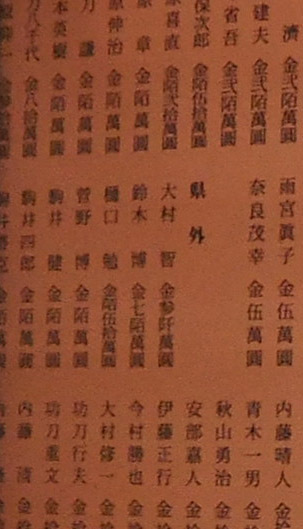 濟 金弐陌萬圓
建夫 金弐陌萬圓
省吾 金弐陌萬圓
保次郎 金陌伍拾萬圓
喜直 金陌弐拾萬圓
章 金陌萬圓
伸治 金陌萬圓
刀 謙 金陌萬圓
本英樹 金陌萬圓
八千代 金八拾萬圓
雨宮眞子 金伍萬圓
奈良茂幸 金伍萬圓
県外
大村 智 金參阡萬圓
鈴木 博 金七陌萬圓
樋口 勉 金陌伍拾萬圓
菅野 博 金陌萬圓
駒井 健 金陌萬圓
駒井四郎 金陌萬圓
内藤晴人 金
青木一男 金
秋山勇治 金
安部嘉人 金
伊藤正行 金
今村勝也 金
大村修一 金
功刀行夫 金
功刀重文 金
内藤 清 金